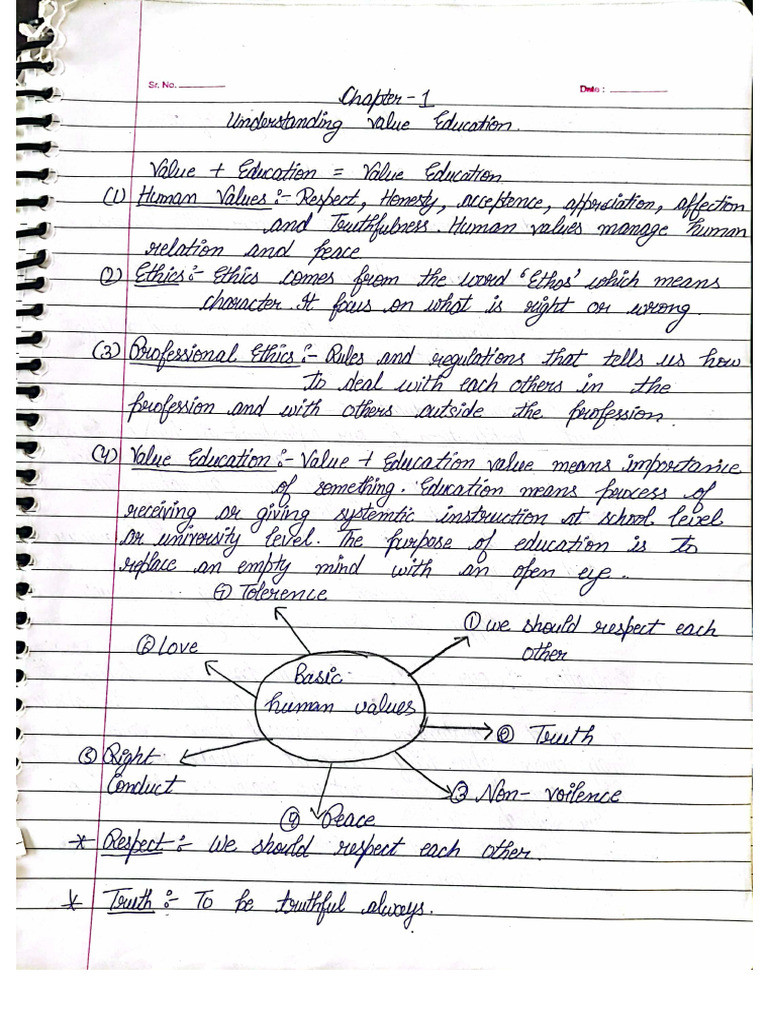 Sr. No.
Date :
Chapter-1
Understanding value Education.
Value + Education = Value Education
(1) Human Values :- Respect, Honesty, acceptence, appreciation, affection
and Truthfulness. Human values manage human
relation and peace
(2) Ethics :- Ethics comes from the word 'Ethos' which means
character. It focus on what is right or wrong.
(3) Professional Ethics :- Rules and regulations that tells us how
to deal with each others in the
profession and with others outside the profession.
(4) Value Education :- Value + Education value means importance
of something. Education means process of
receiving or giving systemtic instruction at school level
or university level. The purpose of education is to
replace an empty mind with an open eye.
(7) Tolerence
(1) we should respect each
other
(6) Love
Basic
human values
(2) Truth
(5) Right
Conduct
(3) Non- voilence
(4) Peace
* Respect :- We should respect each other.
* Truth :- To be truthful always.